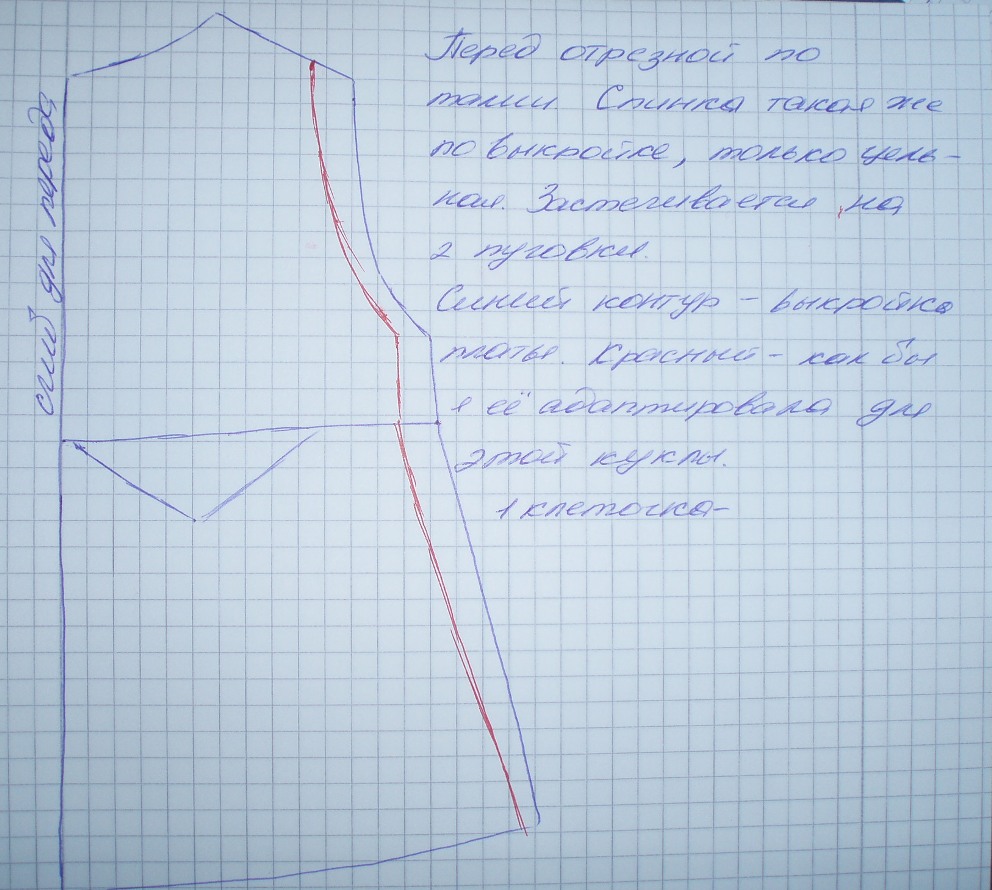 сгиб для переда
Перед отрезной по
талии Спинка такая же
по выкройке, только цель-
ная. Застегивается на
2 пуговки.
Синий контур - выкройка
платья. Красный - как бы
я её адаптировала для
этой куклы.
1 клеточка-